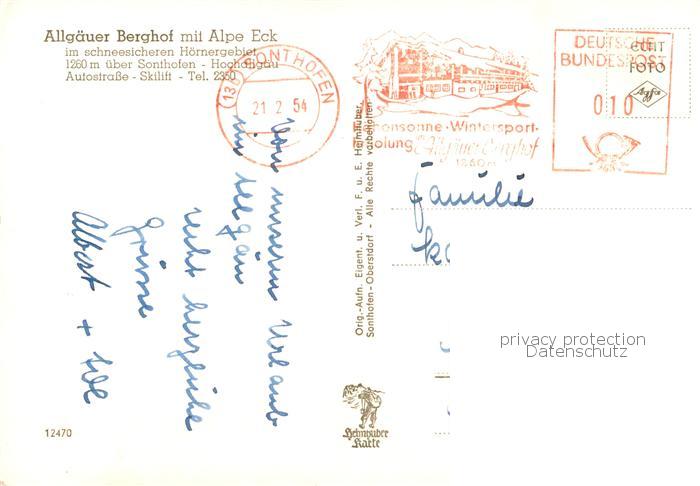 Allgäuer Berghof mit Alpe Eck
im schneesicheren Hörnergebiet
1260 m über Sonthofen - Hochallgäu
Autostraße - Skilift - Tel. 2350
(13b) SONTHOFEN
21 2 54
Wintersport-
Allgäuer Berghof
1260m
DEUTSCHE
BUNDESPOST
010
ECHT
FOTO
Agfa
Von unserem Urlaub
im Allgäu
recht herzliche
Grüsse
Familie
Orig.-Aufn. Eigent. u. Verl. F. u. E. Heimhuber,
Sonthofen-Oberstdorf - Alle Rechte vorbehalten
privacy protection
Datenschutz
Heimhuber
Karte
12470